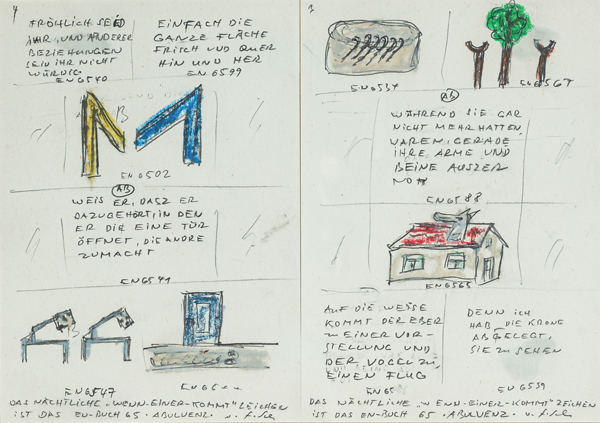 4
FRÖHLICH SEID
IHR, UND ANDERER
BEZIEHUNGEN
SEID IHR NICHT
WÜRDIG
EN6540
EINFACH DIE
GANZE FLÄCHE
FRISCH UND QUER
HIN UND HER
EN6599
B
EN6502
AB
WEIS ER, DASZ ER
DAZUGEHÖRT, IN DEN
ER DIE EINE TÜR
ÖFFNET, DIE ANDRE
ZUMACHT
EN6541
B
EN6547
DAS NÄCHTLICHE "WENN-EINER-KOMMT" ZEICHEN
IST DAS EN-BUCH 65. ABULVENZ.
3
EN6534
EN6567
AB
WÄHREND SIE GAR
NICHT MEHR HATTEN,
WAREN, GERADE
IHRE ARME UND
BEINE AUSZER
EN6588
EN6565
AUF DIE WEISE
KOMMT DER EBER
ZU EINER VOR-
STELLUNG UND
DER VOGEL ZU
EINEN FLUG
EN65
DENN ICH
HAB DIE KRONE
ABGELEGT,
SIE ZU SEHEN
EN6539
DAS NÄCHTLICHE "WENN-EINER-KOMMT" ZEICHEN
IST DAS EN-BUCH 65. ABULVENZ.